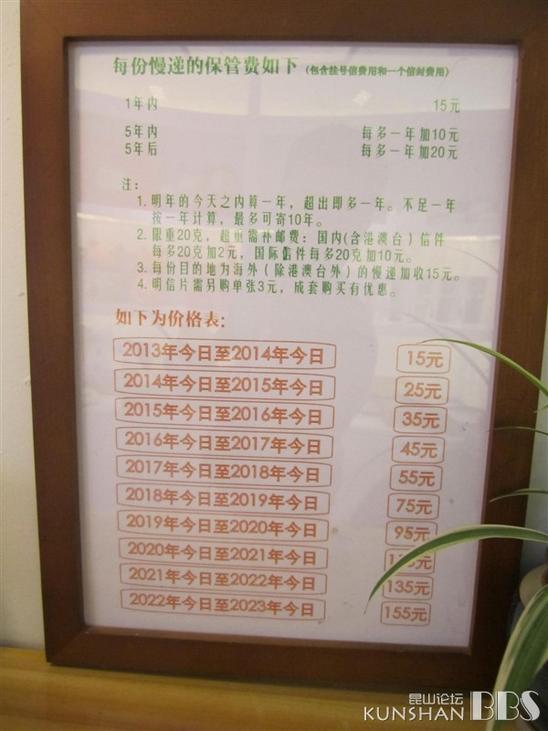 每份慢递的保管费如下(包含挂号信费用和一个信封费用)
1年内 15元
5年内 每多一年加10元
5年后 每多一年加20元
注:
1. 明年的今天之内算一年,超出即多一年。不足一年
按一年计算,最多可寄10年。
2. 限重20克,超重需补邮费:国内(含港澳台)信件
每多20克加2元,国际信件每多20克加10元。
3. 每份目的地为海外(除港澳台外)的慢递加收15元。
4. 明信片需另购单张3元,成套购买有优惠。
如下为价格表:
2013年今日至2014年今日 15元
2014年今日至2015年今日 25元
2015年今日至2016年今日 35元
2016年今日至2017年今日 45元
2017年今日至2018年今日 55元
2018年今日至2019年今日 75元
2019年今日至2020年今日 95元
2020年今日至2021年今日
2021年今日至2022年今日 135元
2022年今日至2023年今日 155元
昆山论坛
KUNSHAN BBS